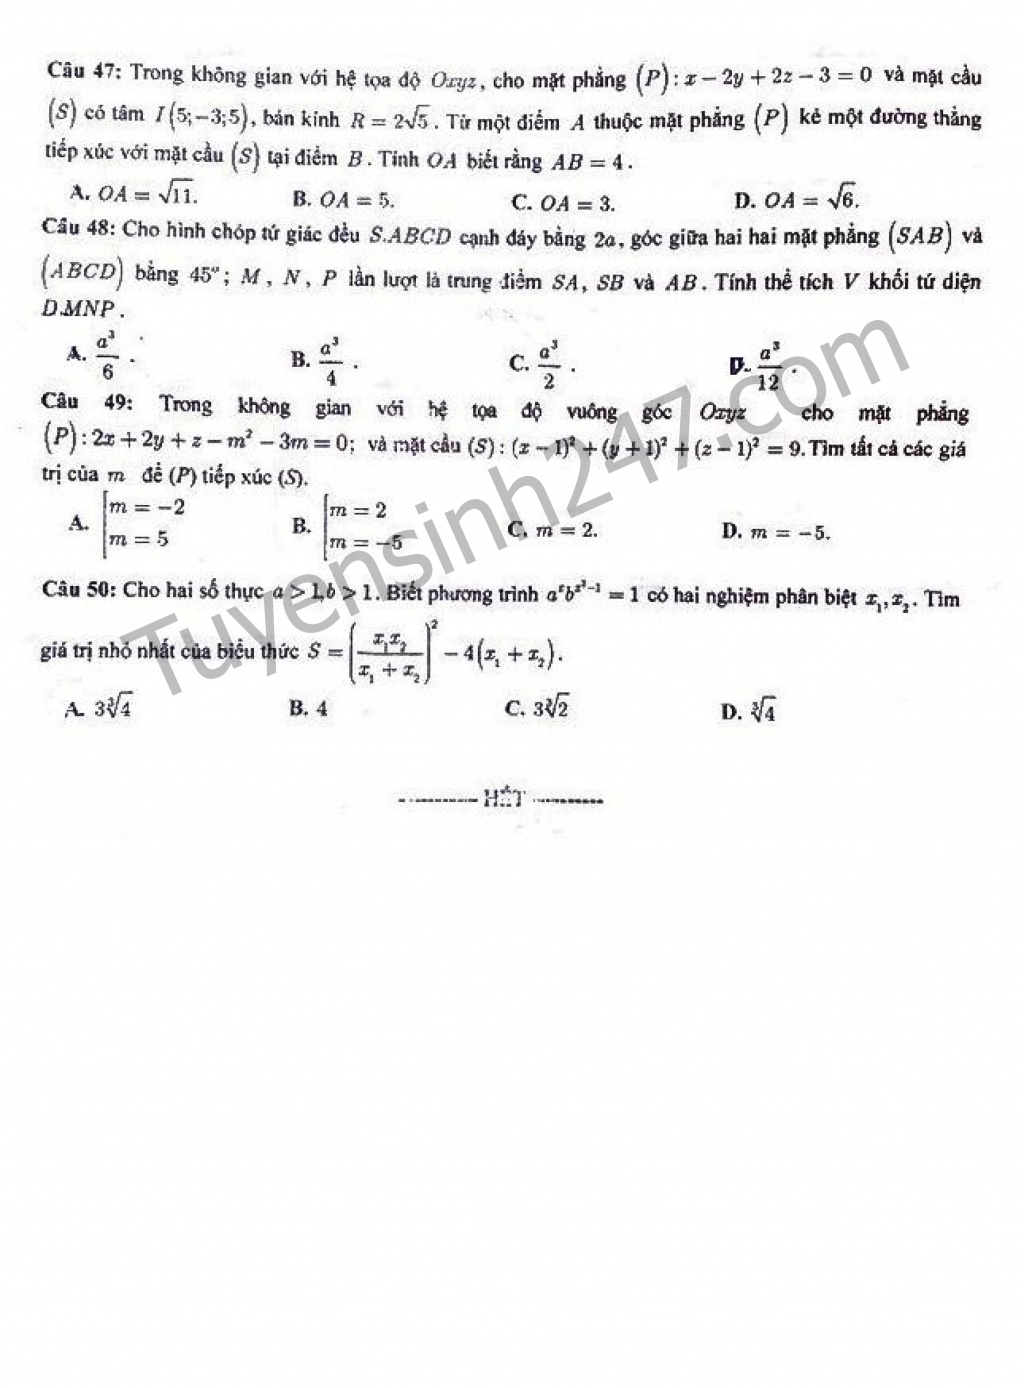 Câu 47: Trong không gian với hệ tọa độ Oxyz, cho mặt phẳng (P): x − 2y + 2z − 3 = 0 và mặt cầu
(S) có tâm I(5;−3;5), bán kính R = 2√5. Từ một điểm A thuộc mặt phẳng (P) kẻ một đường thẳng
tiếp xúc với mặt cầu (S) tại điểm B. Tính OA biết rằng AB = 4.
A. OA = √11. B. OA = 5. C. OA = 3. D. OA = √6.
Câu 48: Cho hình chóp tứ giác đều S.ABCD cạnh đáy bằng 2a, góc giữa hai hai mặt phẳng (SAB) và
(ABCD) bằng 45°; M, N, P lần lượt là trung điểm SA, SB và AB. Tính thể tích V khối tứ diện
D.MNP.
A. a³/6. B. a³/4. C. a³/2. D. a³/12.
Câu 49: Trong không gian với hệ tọa độ vuông góc Oxyz cho mặt phẳng
(P): 2x + 2y + z − m² − 3m = 0; và mặt cầu (S): (x − 1)² + (y + 1)² + (z − 1)² = 9. Tìm tất cả các giá
trị của m để (P) tiếp xúc (S).
A. [m = −2 B. [m = 2 C. m = 2. D. m = −5.
m = 5 m = −5
Câu 50: Cho hai số thực a > 1, b > 1. Biết phương trình aˣbˣ²⁻¹ = 1 có hai nghiệm phân biệt x₁, x₂. Tìm
giá trị nhỏ nhất của biểu thức S = (x₁x₂/(x₁ + x₂))² − 4(x₁ + x₂).
A. 3∛4 B. 4 C. 3∛2 D. ∛4
---------- HẾT ----------
Tuyensinh247.com